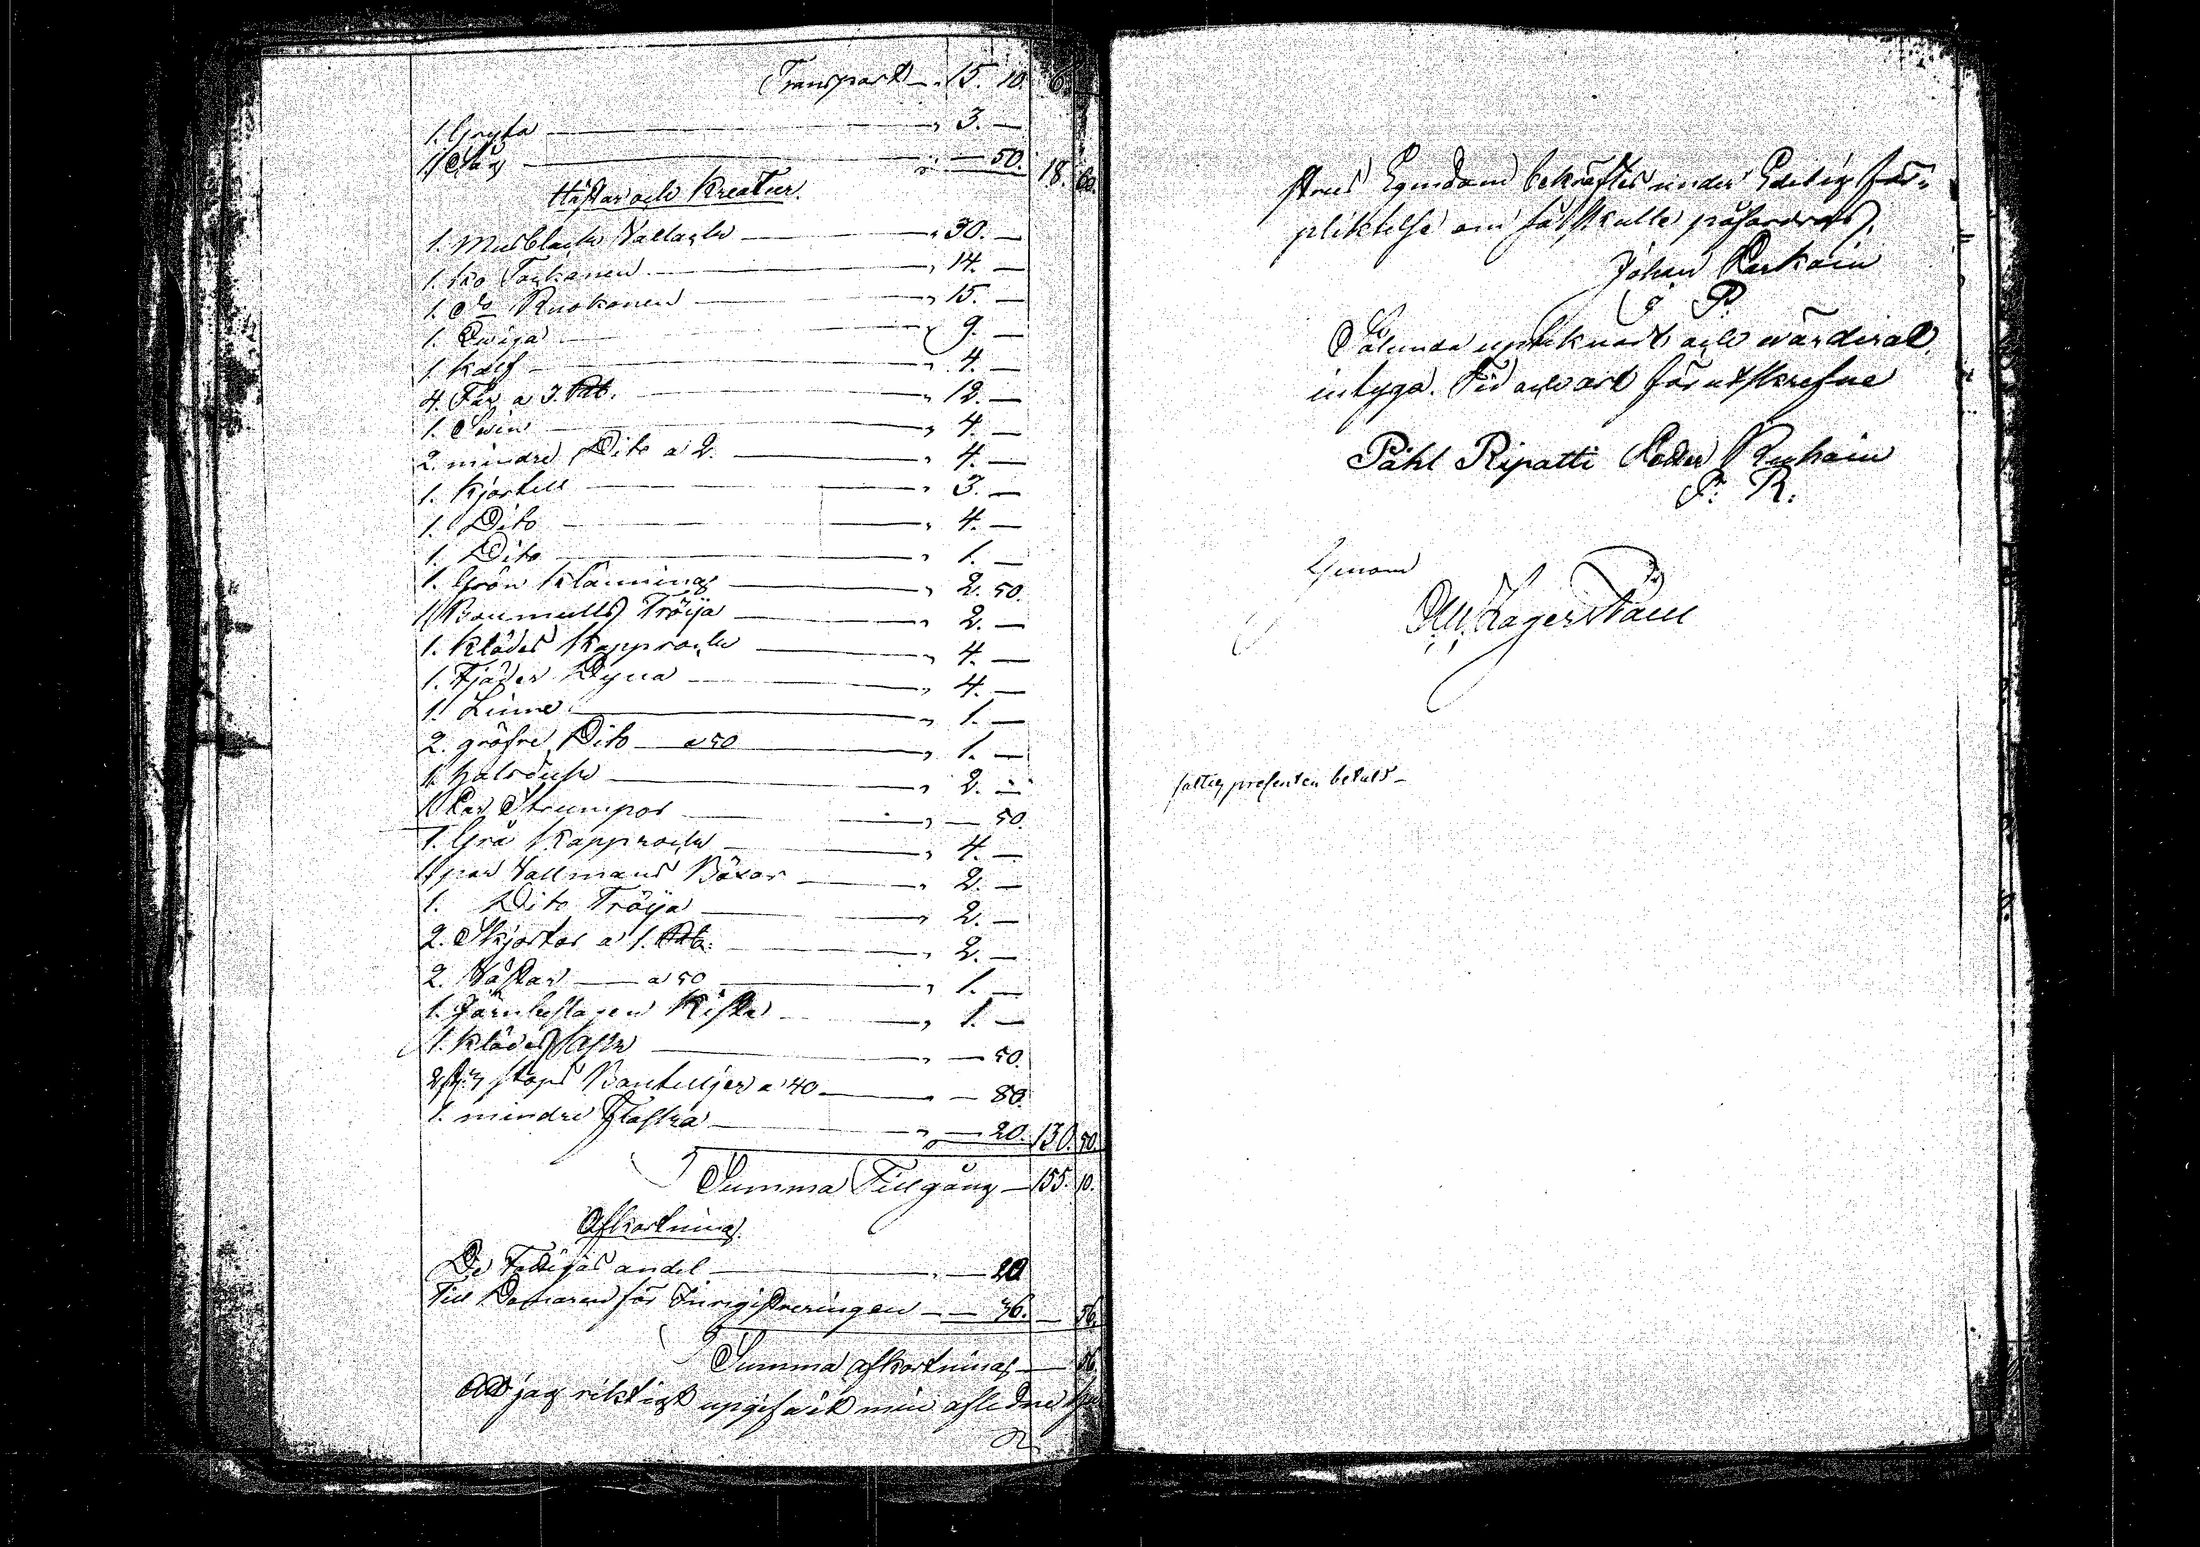 Transport — " 15. 10. 6.
1. Gryta — " 3. —
1. Såg — " — 50. 18. 60.
Hästar och Kreatur.
1. Musblack Vallack — " 30. —
1. Ko Torkanen — " 14. —
1. Do Ruokonen — " 15. —
1. Qwiga — " 9. —
1. Kalf — " 4. —
4. Får a 3. Rub. — " 12. —
1. Swin — " 4. —
2. mindre Dito a 2. — " 4. —
1. Kjortell — " 3. —
1. Dito — " 4. —
1. Dito — " 1. —
1. Grön Klänning — " 2. 50.
1. Boumulls Tröija — " 2. —
1. Klädes Kapprock — " 4. —
1. Fjäder Dyna — " 4. —
1. Linne — " 1. —
2. gröfre Dito — a 50 — " 1. —
1. halsduk — " 2. —
1. Par Strumpor — " — 50.
1. Grå Kapprock — " 4. —
1. par Vallmans Böxor — " 2. —
1. Dito Tröija — " 2. —
2. Skjortor a 1. Rub. — " 2. —
2. Västar — a 50 — " 1. —
1. Järnbeslagen Kista — " 1. —
1. Klädes — " — 50.
2 st. stops Bouteiljer a 40 — " — 80.
1. mindre Flaska — " — 20. 130. 50.
Summa Tillgång — 155. 10.
Afkortning
De Fattigas andel — " — 20
Till Domaren för Inregistreringen — — 36. — 56.
Summa afkortning — 56
At jag riktigt upgifwit min aflidne
strus Egendom bekräftes under Edelig för-
pliktelse om så skulle påfordras.
Johan Parkoin
J. P.
Sålunda uptecknadt och wärderat,
intyga. Tid och ort förutskrefne
Påhl Ripatti Peder Ruhoin
P. R.
Genom
Lagerstam
fattig procenten betald —